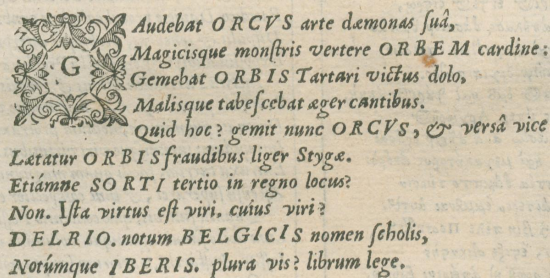 GAudebat ORCVS arte dæmonas ſuâ,
Magicisque monſtris vertere ORBEM cardine:
Gemebat ORBIS Tartari victus dolo,
Malisque tabeſcebat æger cantibus.
Quid hoc? gemit nunc ORCVS, & versâ vice
Lætatur ORBIS fraudibus liger Stygæ.
Etiámne SORTI tertio in regno locus?
Non. Iſta virtus eſt viri, cuius viri?
DELRIO. notum BELGICIS nomen ſcholis,
Notúmque IBERIS. plura vis? librum lege.